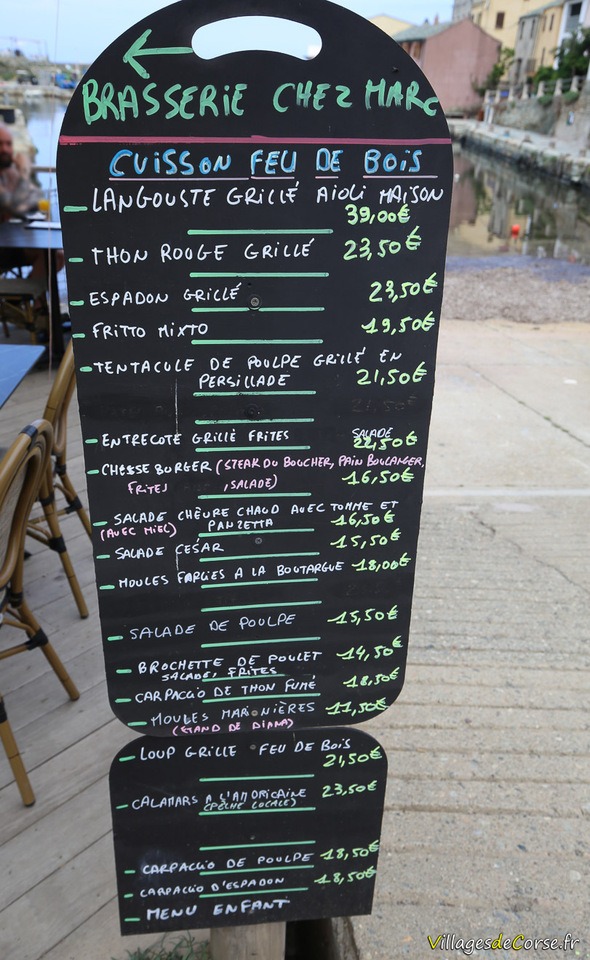 BRASSERIE CHEZ MARC
CUISSON FEU DE BOIS
LANGOUSTE GRILLÉ AIOLI MAISON
39,00€
THON ROUGE GRILLÉ 23,50€
ESPADON GRILLÉ 23,50€
FRITTO MIXTO 19,50€
TENTACULE DE POULPE GRILLÉ EN
PERSILLADE 21,50€
ENTRECOTE GRILLÉ FRITES SALADE
22,50€
CHEESE BURGER (STEAK DU BOUCHER, PAIN BOULANGER,
FRITES ,SALADE) 16,50€
SALADE CHÈVRE CHAUD AVEC TOMME ET
(AVEC MIEL) PANZETTA 16,50€
SALADE CESAR 15,50€
MOULES FARCIES A LA BOUTARGUE 18,00€
SALADE DE POULPE 15,50€
BROCHETTE DE POULET 14,50€
SALADE, FRITES
CARPACCIO DE THON FUMÉ 18,50€
MOULES MARINIÈRES 11,50€
(ETANG DE DIANA)
LOUP GRILLE FEU DE BOIS
21,50€
CALAMARS A L'AMORICAINE 23,50€
(PÊCHE LOCALE)
CARPACCIO DE POULPE 18,50€
CARPACCIO D'ESPADON 18,50€
MENU ENFANT
VillagesdeCorse.fr